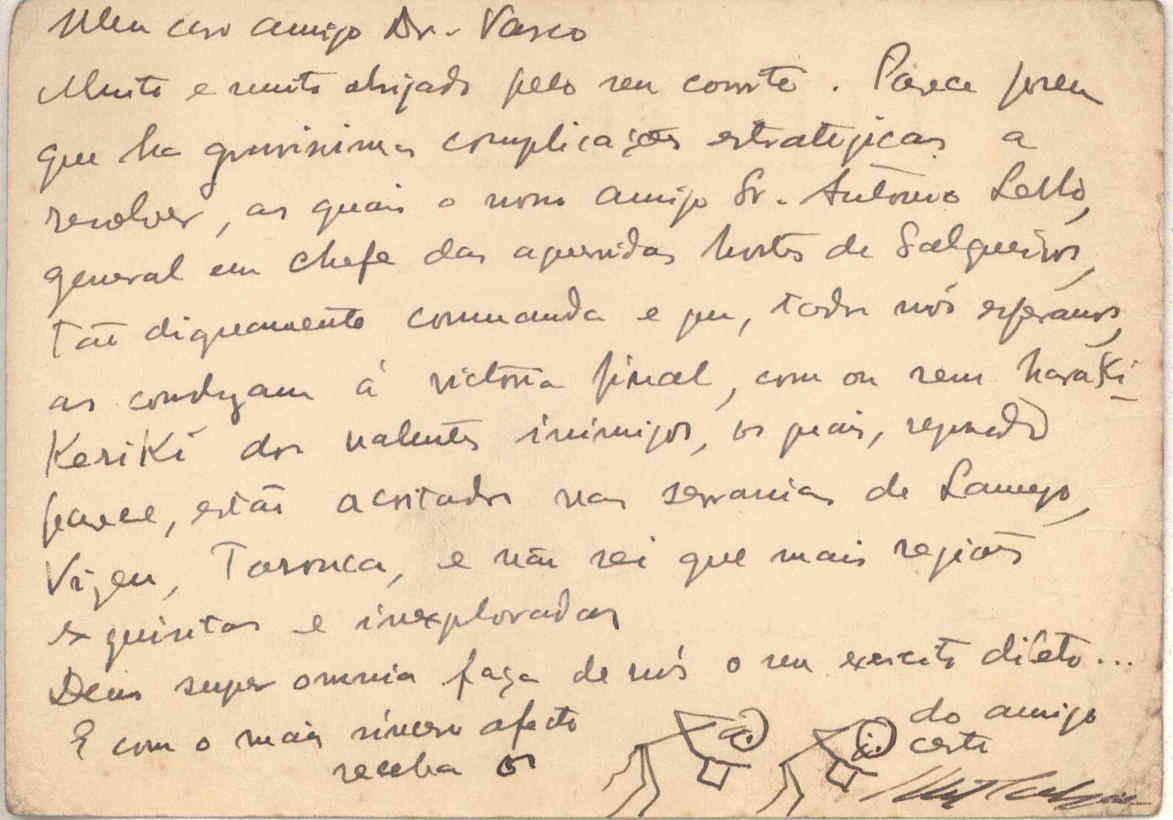 Meu caro amigo Dr. Vasco
Muito e muito obrigado pelo seu convite. Parece porem
que ha gravissimas complicações estratejicas a
resolver, as quais o nosso amigo Sr. António Lello,
general em chefe das aguerridas hostes de Salgueiros,
tão dignamente commanda e que, todos nós esperamos,
as conduzam á victoria final, com ou sem haraKi
KeriKi dos valentes inimigos, os quais, segundo
parece, estão acoitados nas serranias de Lamego,
Vizeu, Tarouca, e não sei que mais regiões
exquisitas e inexploradas
Deus super omnia faça de nós o seu exercito dileto...
E com o mais sincero afecto
receba os
do amigo
certo